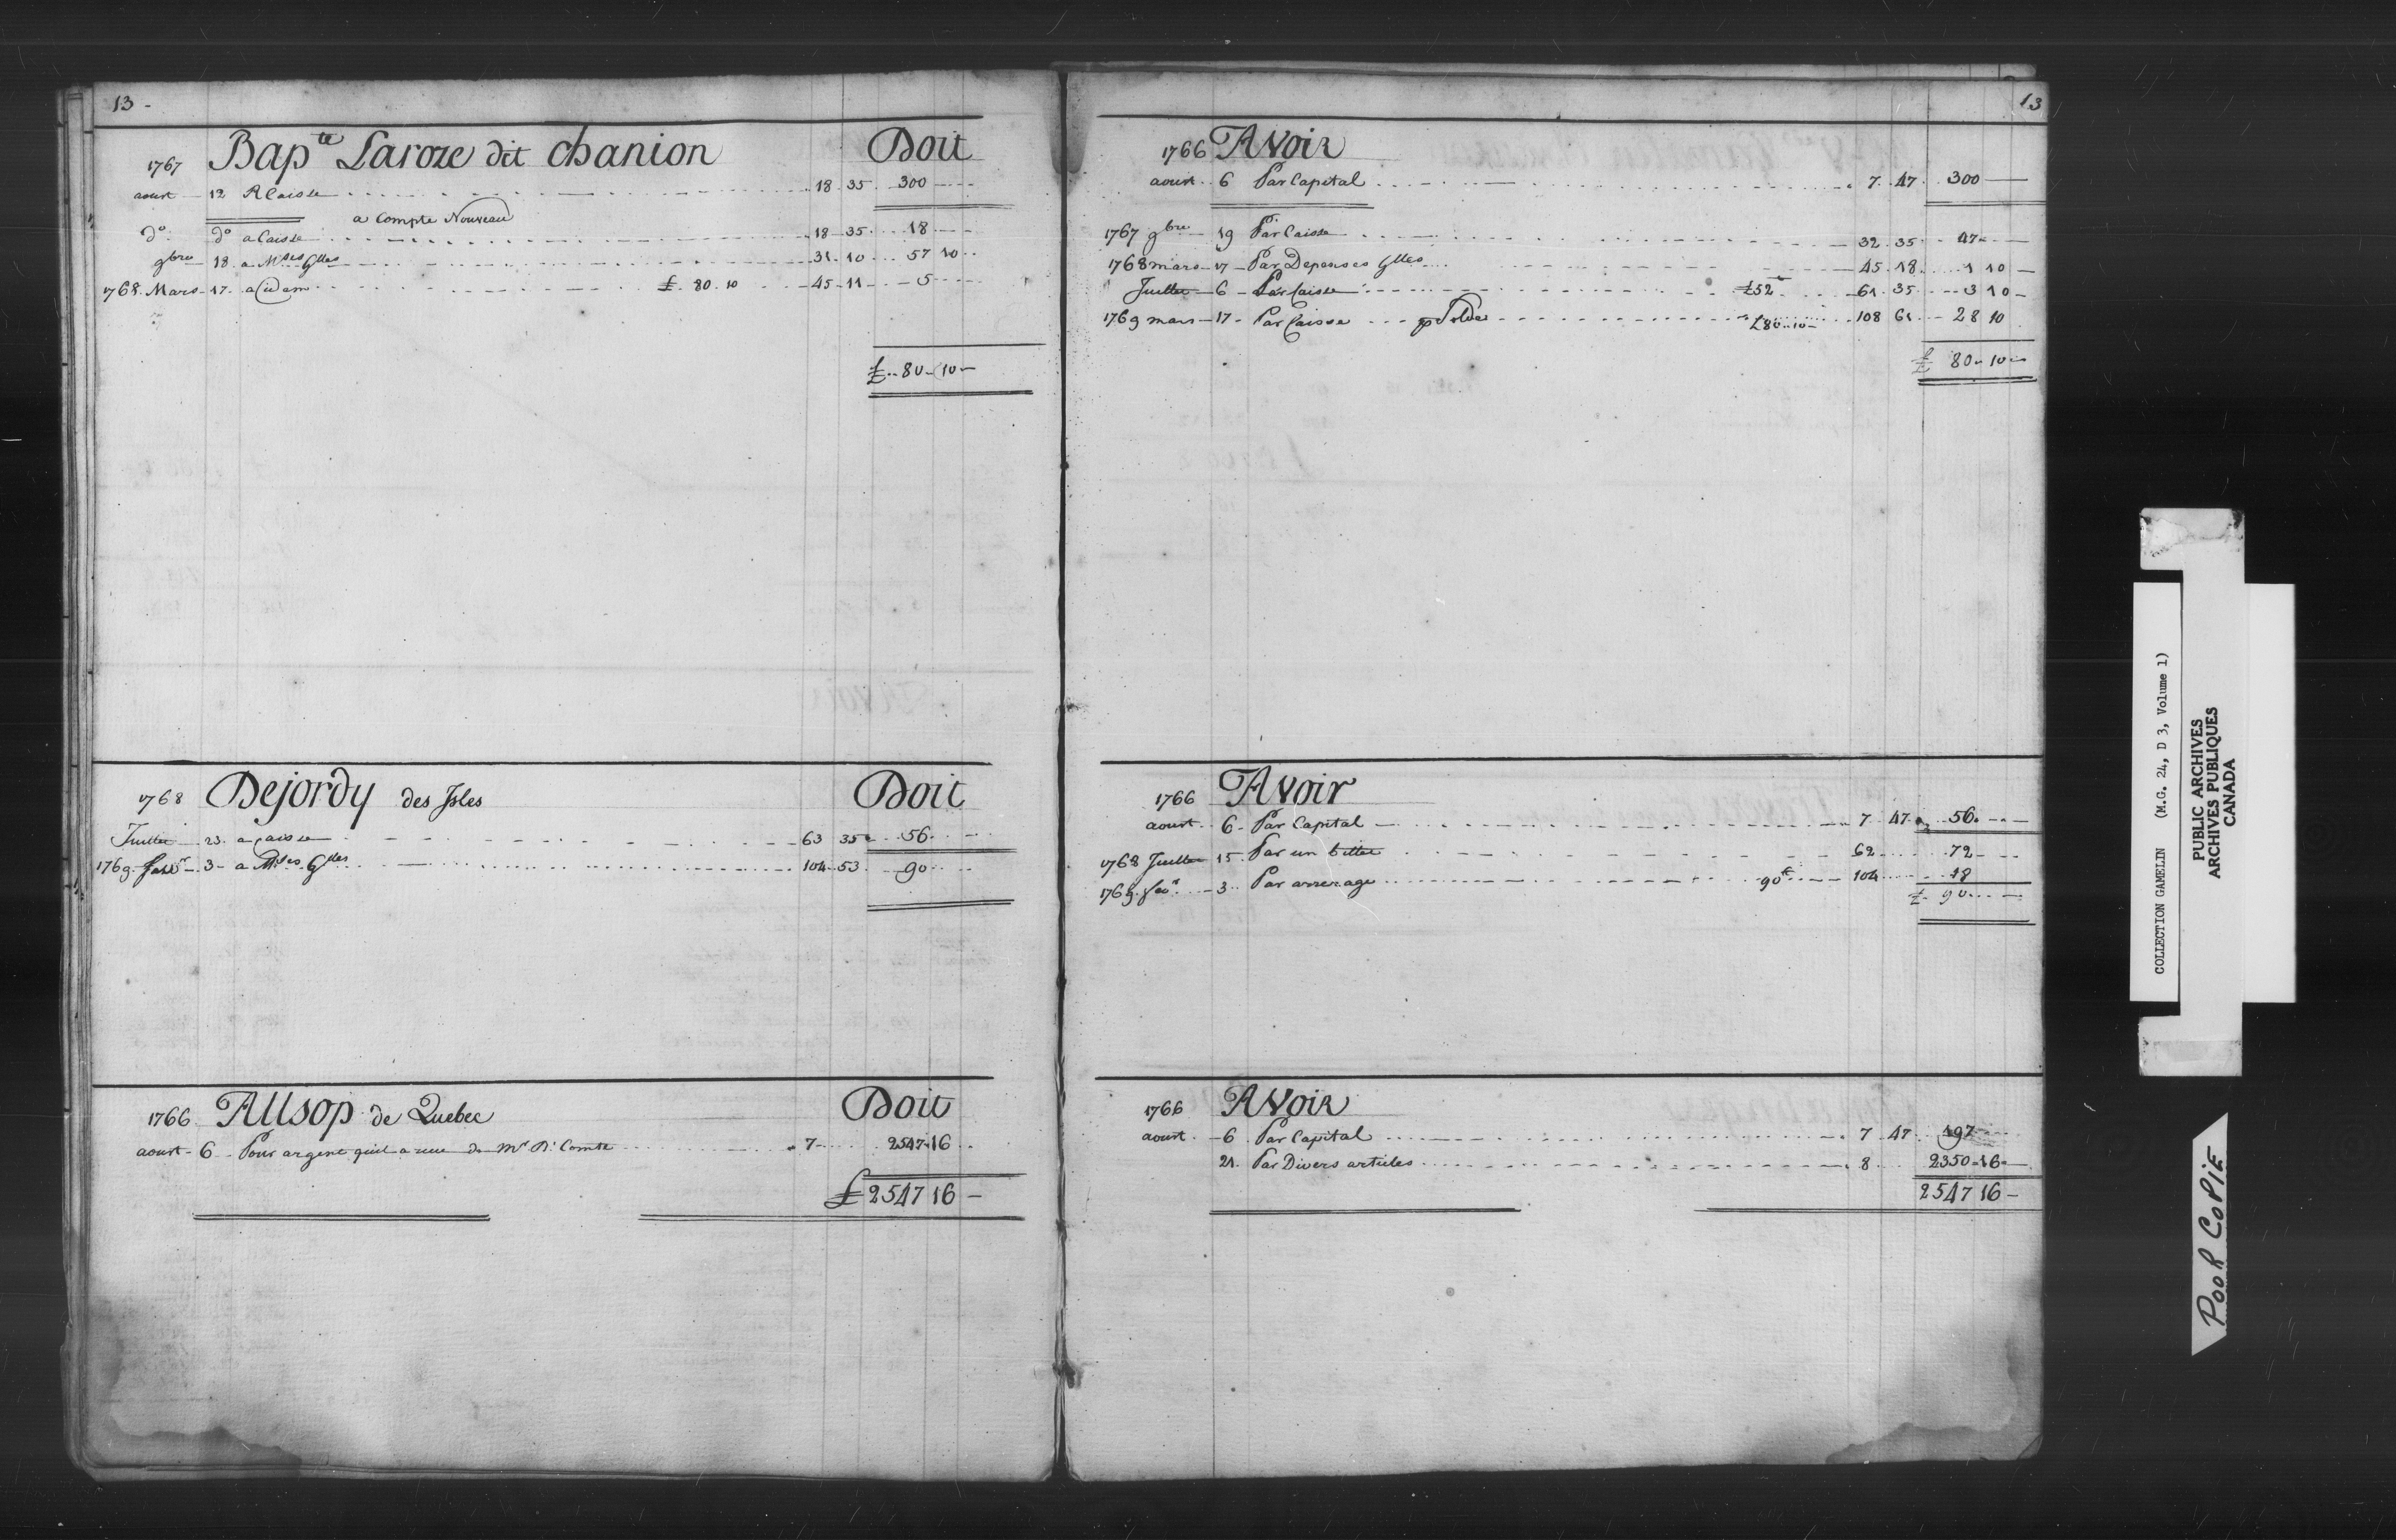 13 -
Bap.te Laroze dit chanion Doit
1767
aoust 12 A Caisse 18 35 300
a Compte Nouveau
d° d° a Caisse 18 35 18
9bre 18 a Mses Glles 31 10 57 10
1768 Mars 17 a idem £ 80 10 45 11 5
£ 80 10
1768 Dejordy des Isles Doit
Juillet 23 a Caisse 63 35 56
1769 fevr 3 a Mses Glles 104 53 90
1766 Allsop de Quebec Doit
aoust 6 Pour argent quil a reçu de Mr 7 2547 16
£ 2547 16
13
1766 Avoir
aoust 6 Par Capital 7 47 300
1767 9bre 19 Par Caisse 32 35 47
1768 mars 17 Par Depenses Glles 45 18 1 10
Juillet 6 Par Caisse £52 61 35 3 10
1769 mars 17 Par Caisse p Solde £80 10 108 61 28 10
£ 80 10
1766 Avoir
aoust 6 Par Capital 7 47 56
1768 Juillet 15 Par un billet 62 72
1769 fevr 3 Par arrerage 90 104 18
£ 90
1766 Avoir
aoust 6 Par Capital 7 47 197
21 Par Divers articles 8 2350 16
2547 16
COLLECTION GAMELIN (M.G. 24, D 3, Volume 1)
PUBLIC ARCHIVES
ARCHIVES PUBLIQUES
CANADA
POOR COPIE